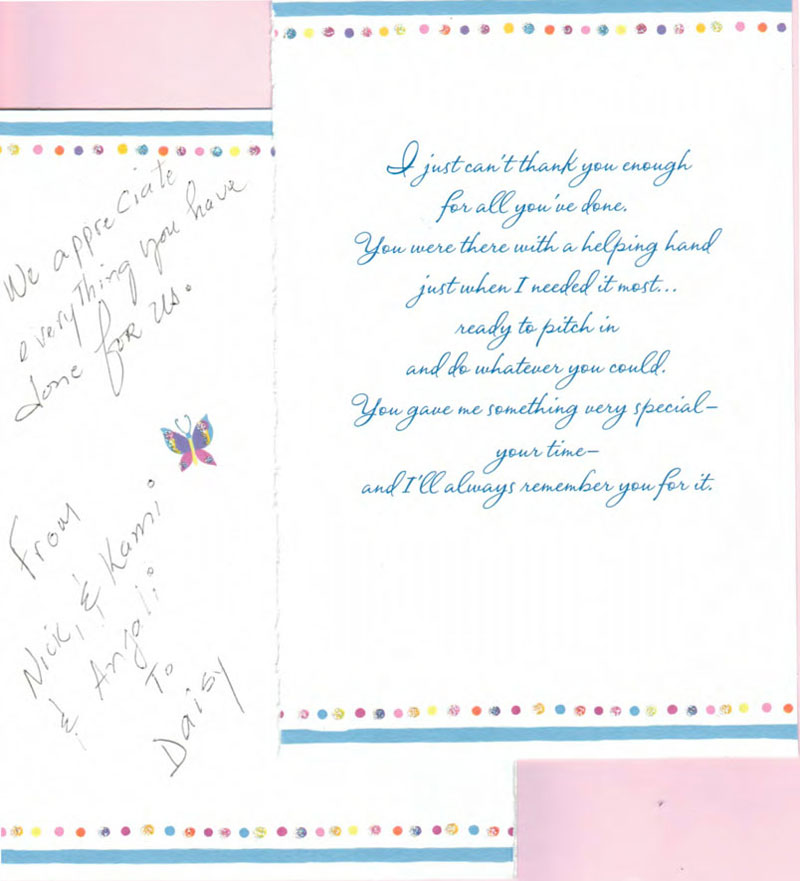 We appreciate
everything you have
done for us.
From
Nick, & Kami
& Anjali
To
Daisy
I just can't thank you enough
for all you've done.
You were there with a helping hand
just when I needed it most...
ready to pitch in
and do whatever you could.
You gave me something very special–
your time–
and I'll always remember you for it.